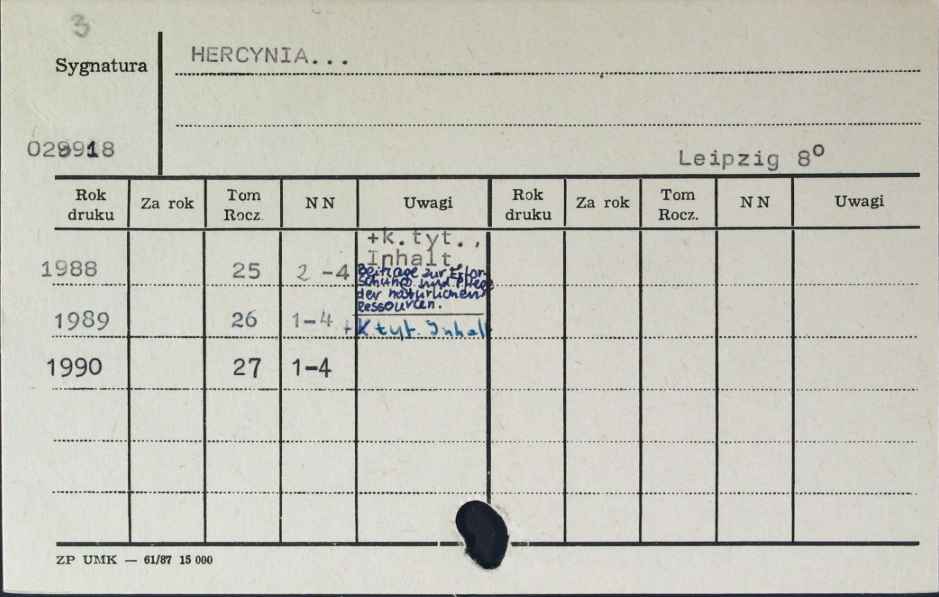 3
Sygnatura
HERCYNIA...
029918
Leipzig 8º
Rok druku Za rok Tom Rocz. NN Uwagi Rok druku Za rok Tom Rocz. NN Uwagi
+k.tyt.,
Inhalt
1988 25 2-4
Beiträge zur Erfor-
schung und Pflege
der natürlichen
Ressourcen.
1989 26 1-4 + K tyt. Inhalt
1990 27 1-4
ZP UMK — 61/87 15 000